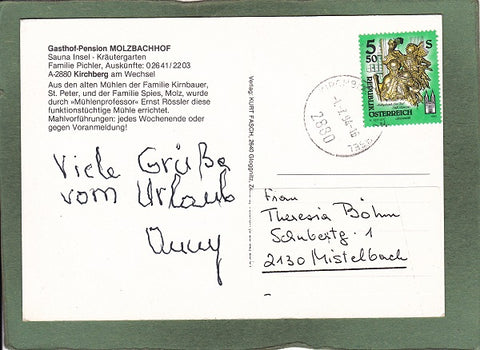 Gasthof-Pension MOLZBACHHOF
Sauna Insel - Kräutergarten
Familie Pichler, Auskünfte: 0 26 41 / 22 03
A-2880 Kirchberg am Wechsel
Aus den alten Mühlen der Familie Kirnbauer,
St. Peter, und der Familie Spies, Molz, wurde
durch »Mühlenprofessor« Ernst Rössler diese
funktionstüchtige Mühle errichtet.
Mahlvorführungen: jedes Wochenende oder
gegen Voranmeldung!
Viele Grüße
vom Urlaub
Verlag: KURT FASCH, 2640 Gloggnitz
5 50
S
REPUBLIK
ÖSTERREICH
2880
Frau
Theresia Böhm
Schubertg. 1
2130 Mistelbach